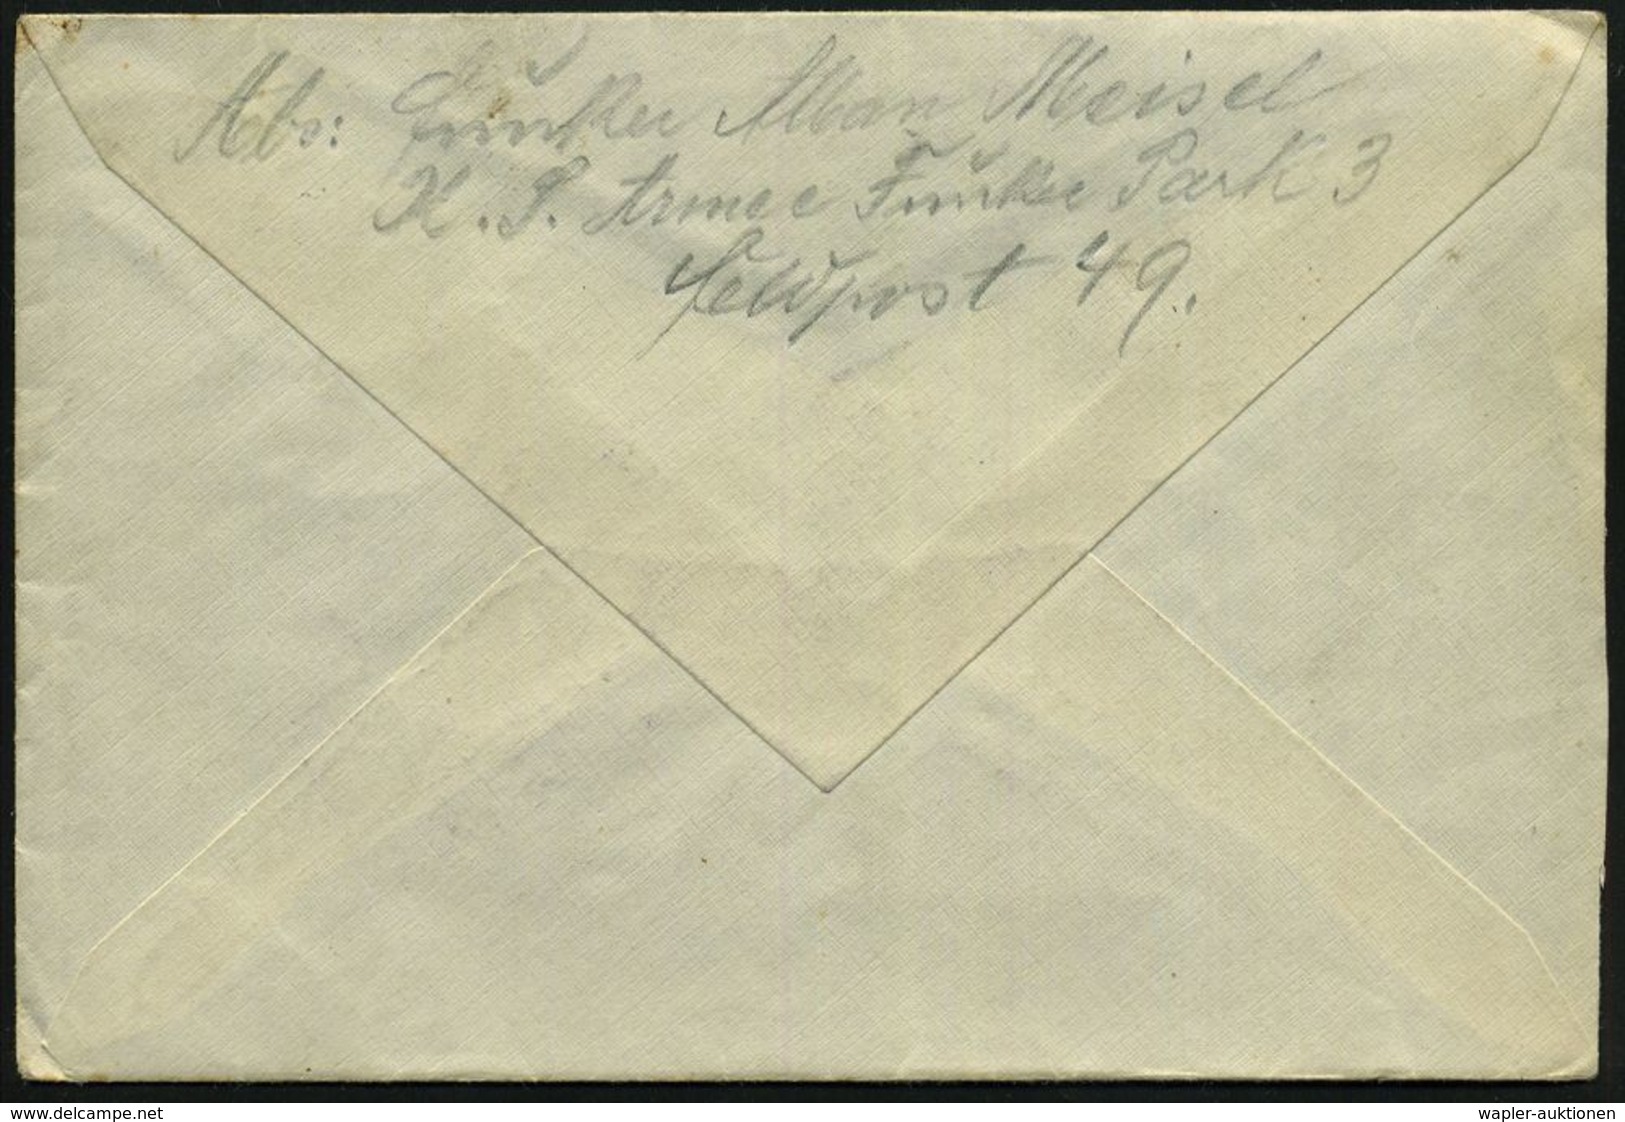 Abs: Funker Alban Meisel
K. S. Armee Funker Park 3
Feldpost 49.
www.delcampe.net
wapler-auktionen